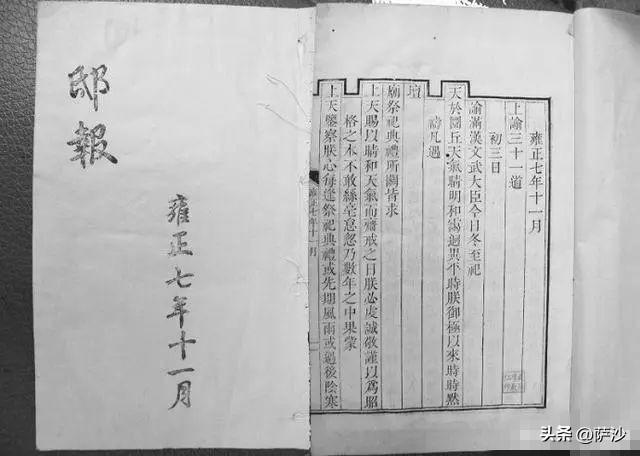 邸報
雍正七年十一月
雍正七年十一月
上諭三十一道
初三日
諭滿漢文武大臣今日冬至祀
天於圜丘天氣晴明和藹迥異平時朕御極以來時時默
禱凡遇
壇
廟祭祀典禮所關皆求
上天賜以晴和天氣而齋戒之日朕必虔誠敬謹以爲昭
格之本不敢絲毫怠忽乃數年之中果蒙
上天鑒察朕心每逢祭祀典禮或先期風雨或過後陰寒
雍正七年十一月
头条 @萨沙